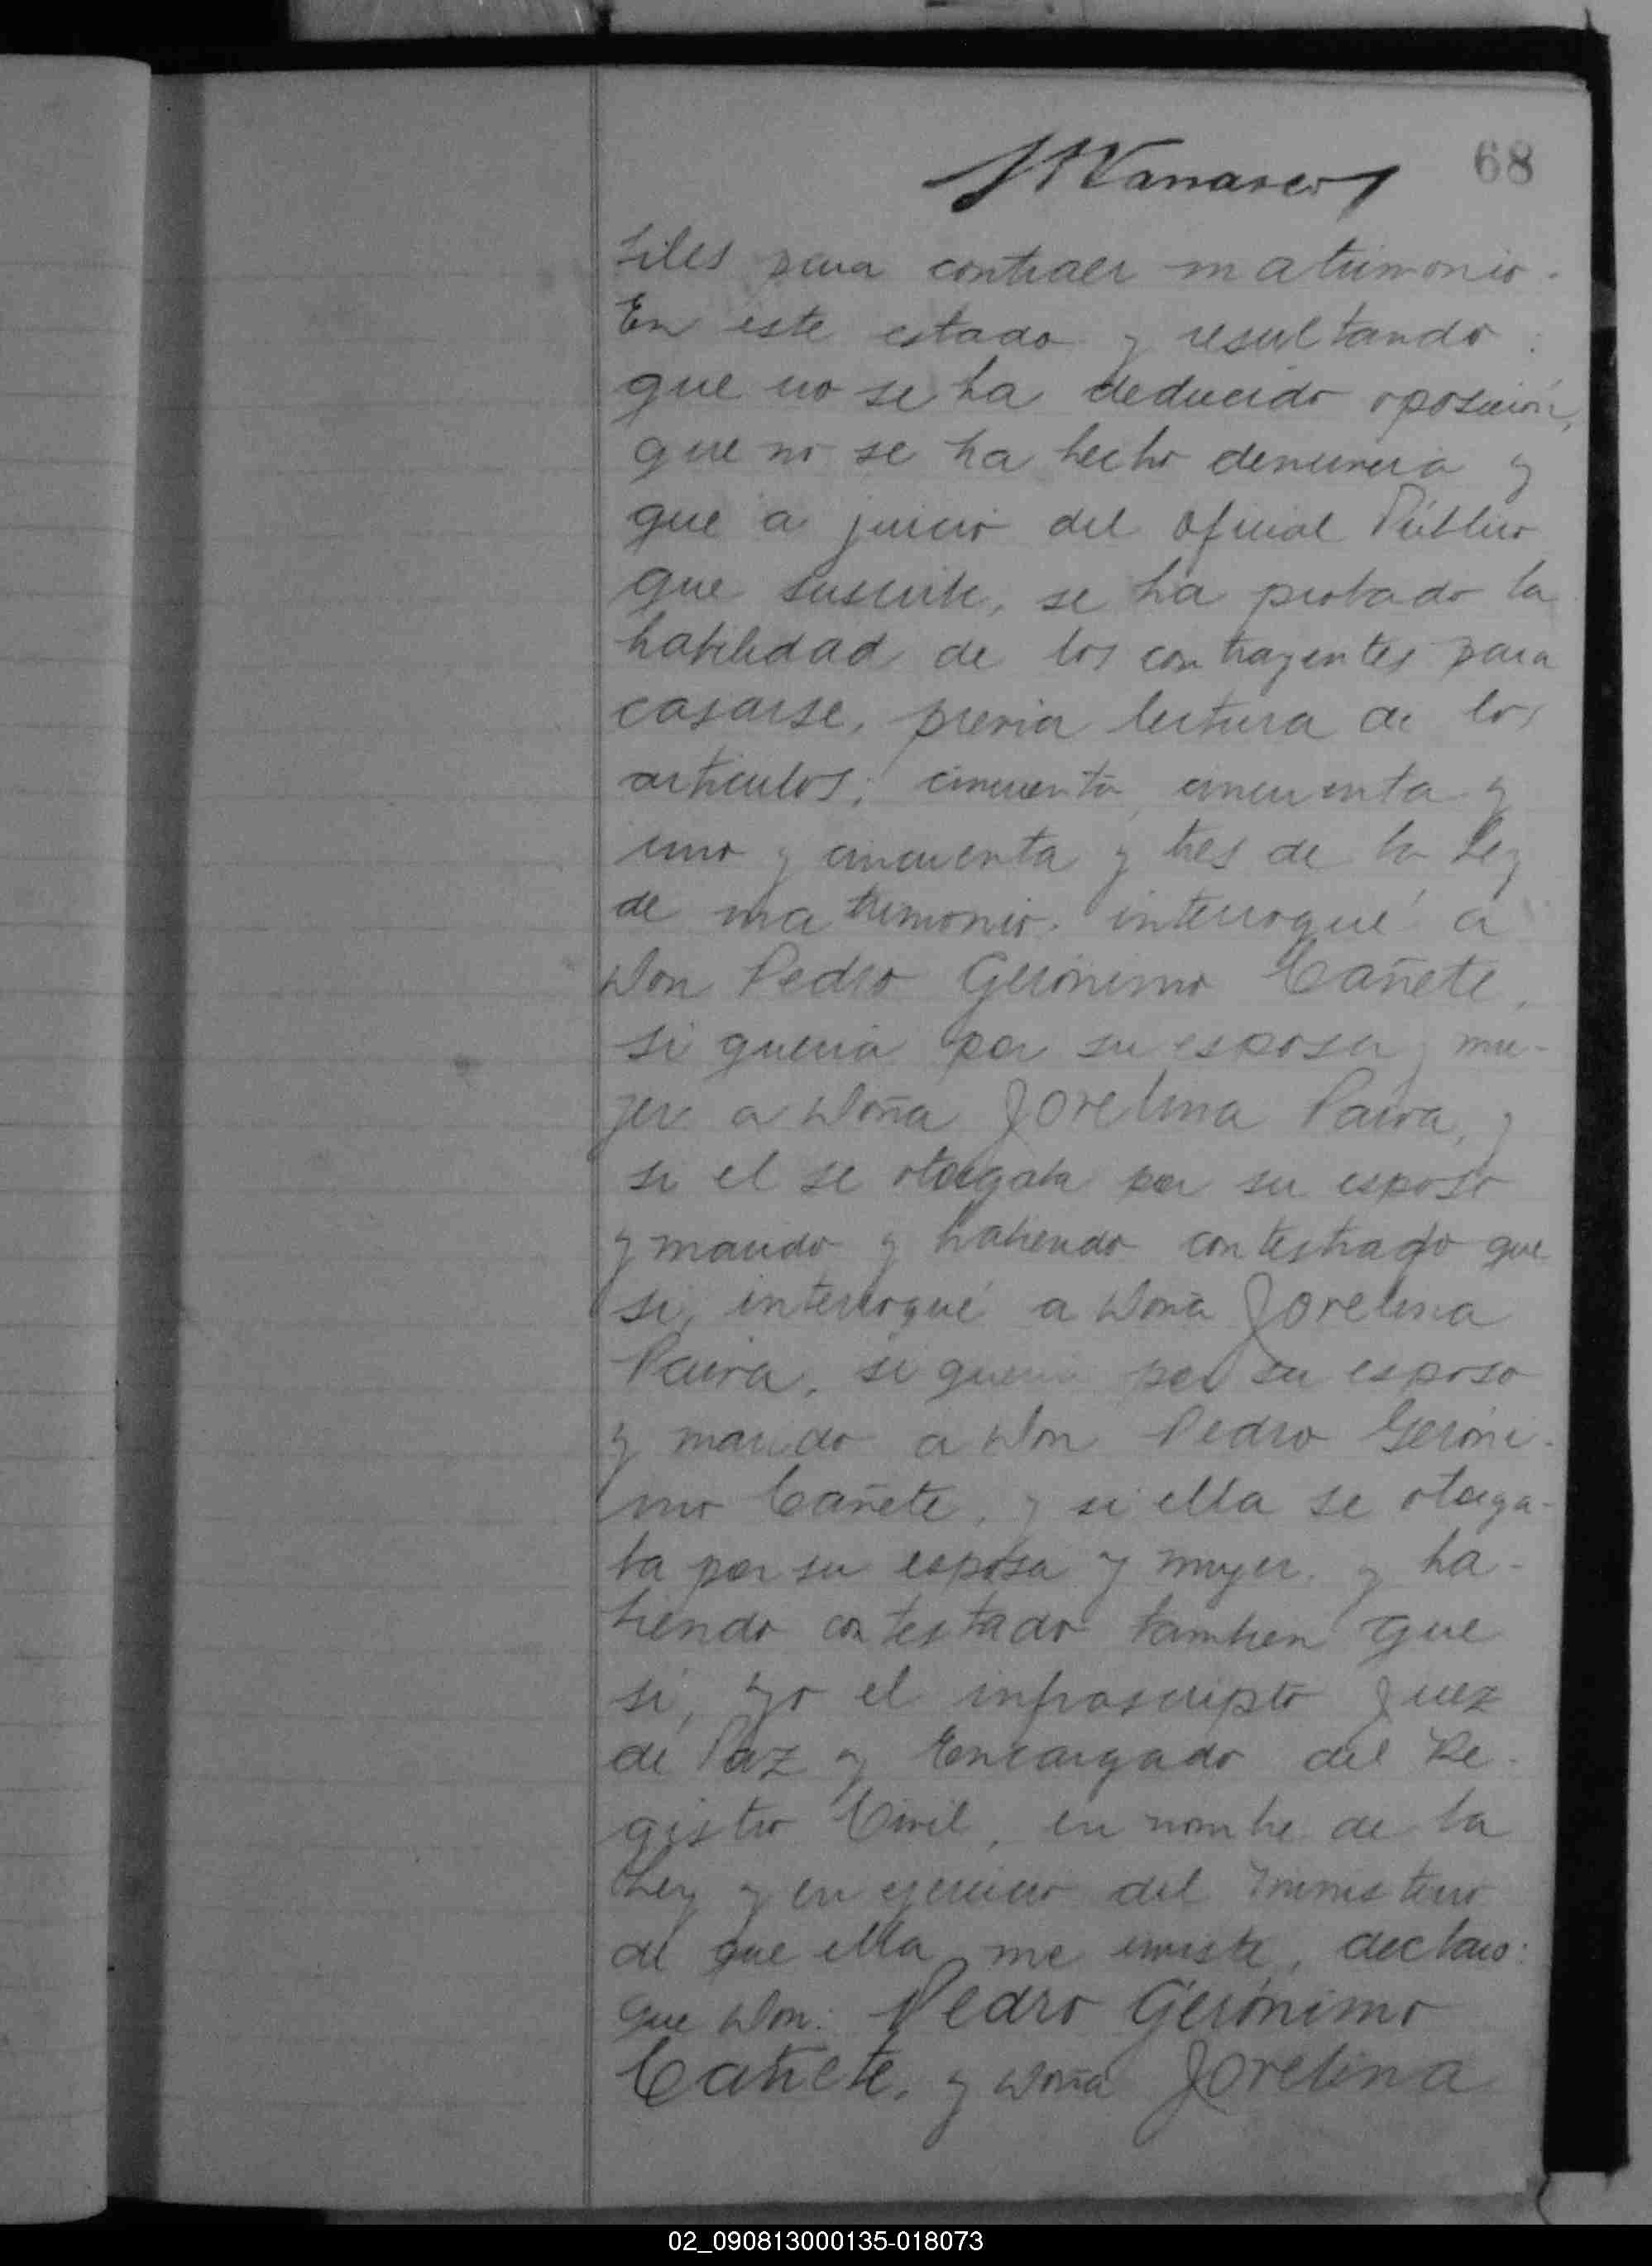 68
biles para contraer matrimonio.
En este estado y resultando:
que no se ha deducido oposición,
que no se ha hecho denuncia y
que a juicio del oficial Público
que suscribe, se ha probado la
habilidad de los contrayentes para
casarse, previa lectura de los
artículos; cincuenta, cincuenta y
uno y cincuenta y tres de la Ley
de matrimonio. interrogué a
Don Pedro Gerónimo Cañete,
si queria por su esposa y mu-
jer a Doña Jovelina Paiva, y
si el se otorgaba por su esposo
y marido y habiendo contestrado que
si, interrogué a Doña Jovelina
Paiva, si queria por su esposo
y marido a Don Pedro Geróni-
mo Cañete, y si ella se otorga-
ba por su esposa y mujer, y ha-
biendo contestado tambien que
si, Yo el infrascripto Juez
de Paz y Encargado del Re-
gistro Civil, en nombre de la
Ley y en ejercicio del ministerio
de que ella me inviste, declaro:
que Don: Pedro Gerónimo
Cañete, y Doña Jovelina
02_090813000135-018073